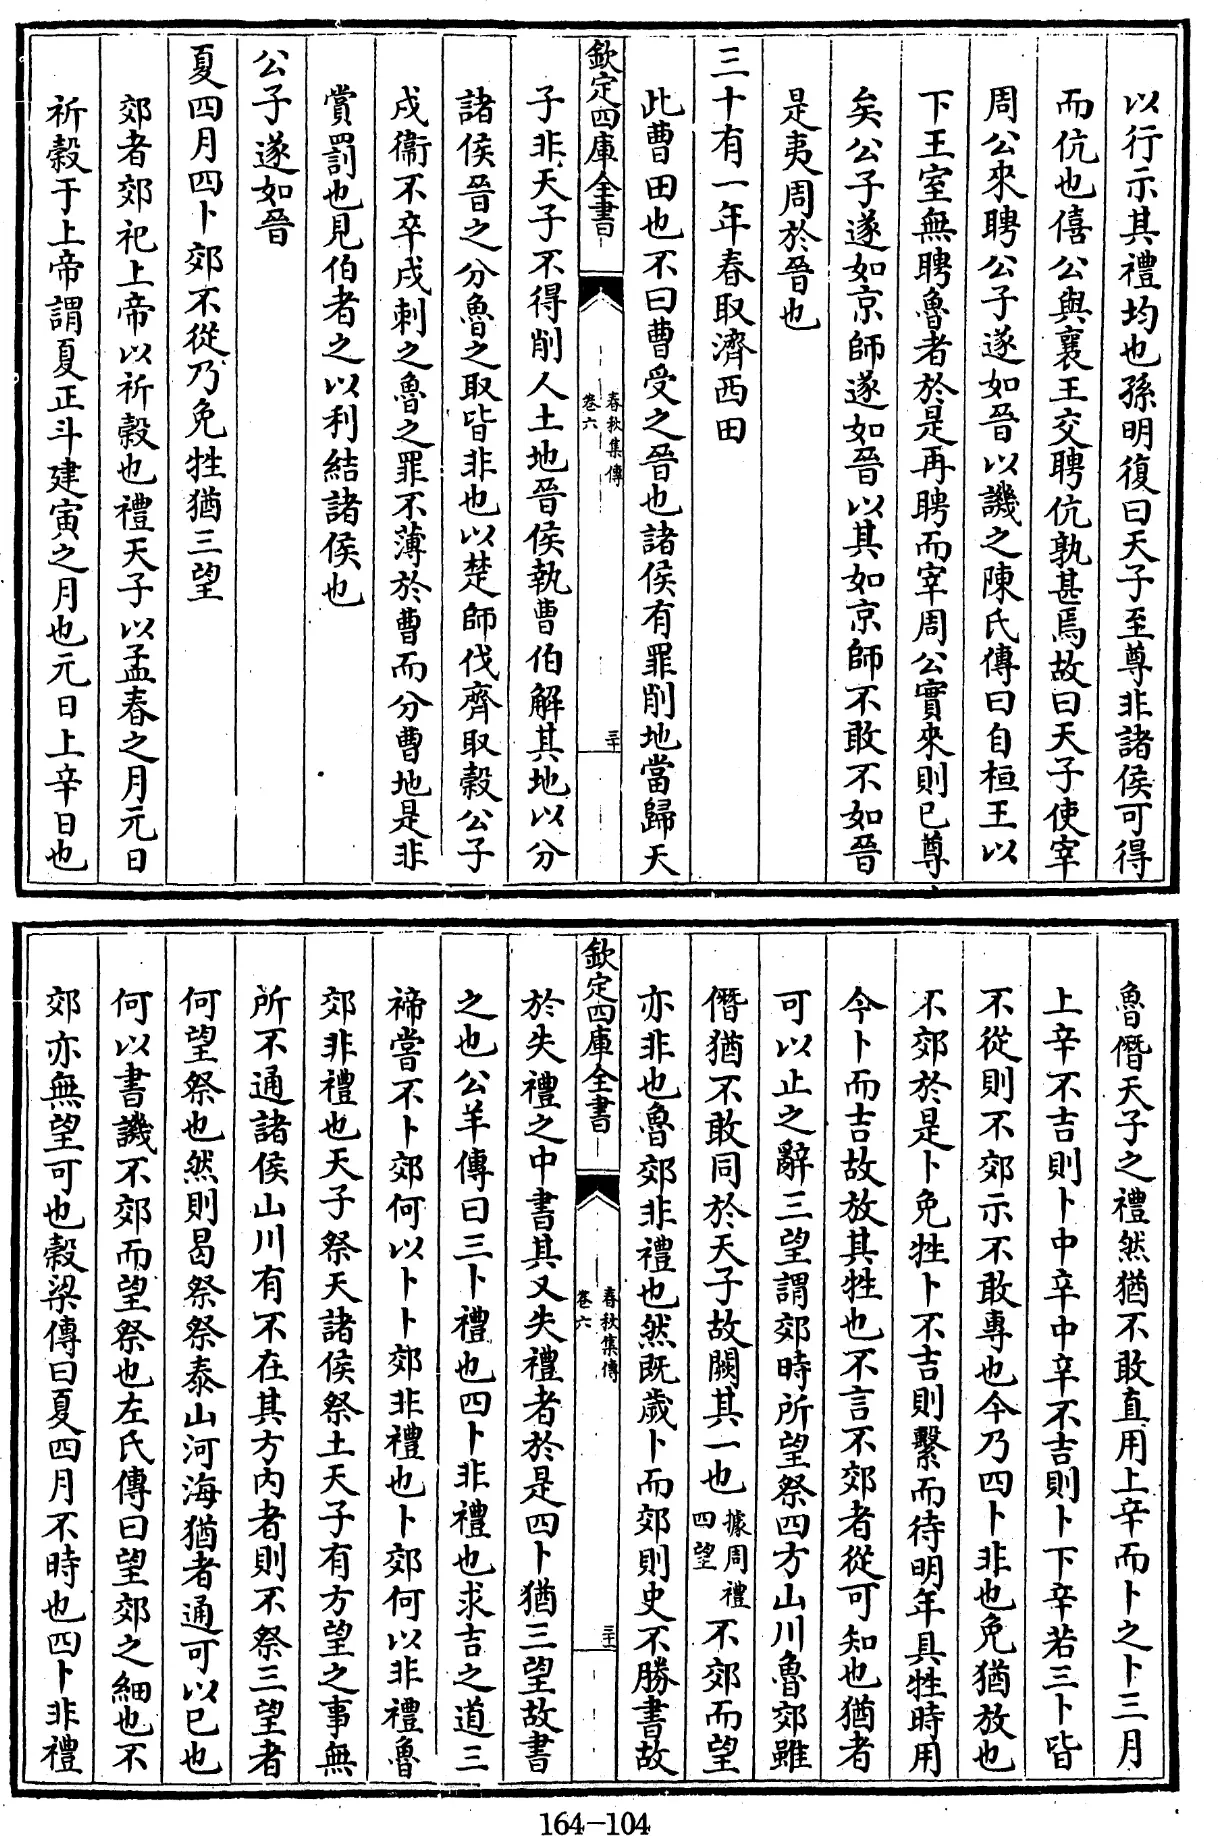 以行示其禮均也孫明復曰天子至尊非諸侯可得
而伉也僖公與襄王交聘伉孰甚焉故曰天子使宰
周公來聘公子遂如晉以譏之陳氏傳曰自桓王以
下王室無聘魯者於是再聘而宰周公實來則已尊
矣公子遂如京師遂如晉以其如京師不敢不如晉
是夷周於晉也
三十有一年春取濟西田
此曹田也不曰曹受之晉也諸侯有罪削地當歸天
欽定四庫全書
春秋集傳
卷六
三十
子非天子不得削人土地晉侯執曹伯解其地以分
諸侯晉之分魯之取皆非也以楚師伐齊取穀公子
戌衞不卒戌刺之魯之罪不薄於曹而分曹地是非
賞罰也見伯者之以利結諸侯也
公子遂如晉
夏四月四卜郊不從乃免牲猶三望
郊者郊祀上帝以祈穀也禮天子以孟春之月元日
祈穀于上帝謂夏正斗建寅之月也元日上辛日也
魯僭天子之禮然猶不敢直用上辛而卜之卜三月
上辛不吉則卜中辛中辛不吉則卜下辛若三卜皆
不從則不郊示不敢專也今乃四卜非也免猶放也
不郊於是卜免牲卜不吉則繫而待明年具牲時用
今卜而吉故放其牲也不言不郊者從可知也猶者
可以止之辭三望謂郊時所望祭四方山川魯郊雖
僭猶不敢同於天子故闕其一也據周禮四望不郊而望
亦非也魯郊非禮也然既歲卜而郊則史不勝書故
欽定四庫全書
春秋集傳
卷六
三十一
於失禮之中書其又失禮者於是四卜猶三望故書
之也公羊傳曰三卜禮也四卜非禮也求吉之道三
禘嘗不卜郊何以卜卜郊非禮也卜郊何以非禮魯
郊非禮也天子祭天諸侯祭土天子有方望之事無
所不通諸侯山川有不在其方內者則不祭三望者
何望祭也然則曷祭祭泰山河海猶者通可以已也
何以書譏不郊而望祭也左氏傳曰望郊之細也不
郊亦無望可也穀梁傳曰夏四月不時也四卜非禮
164-104